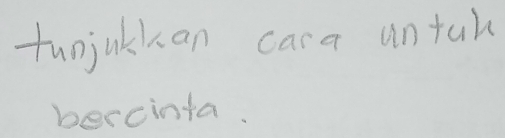 tunjukkan cara untuk
bercinta.